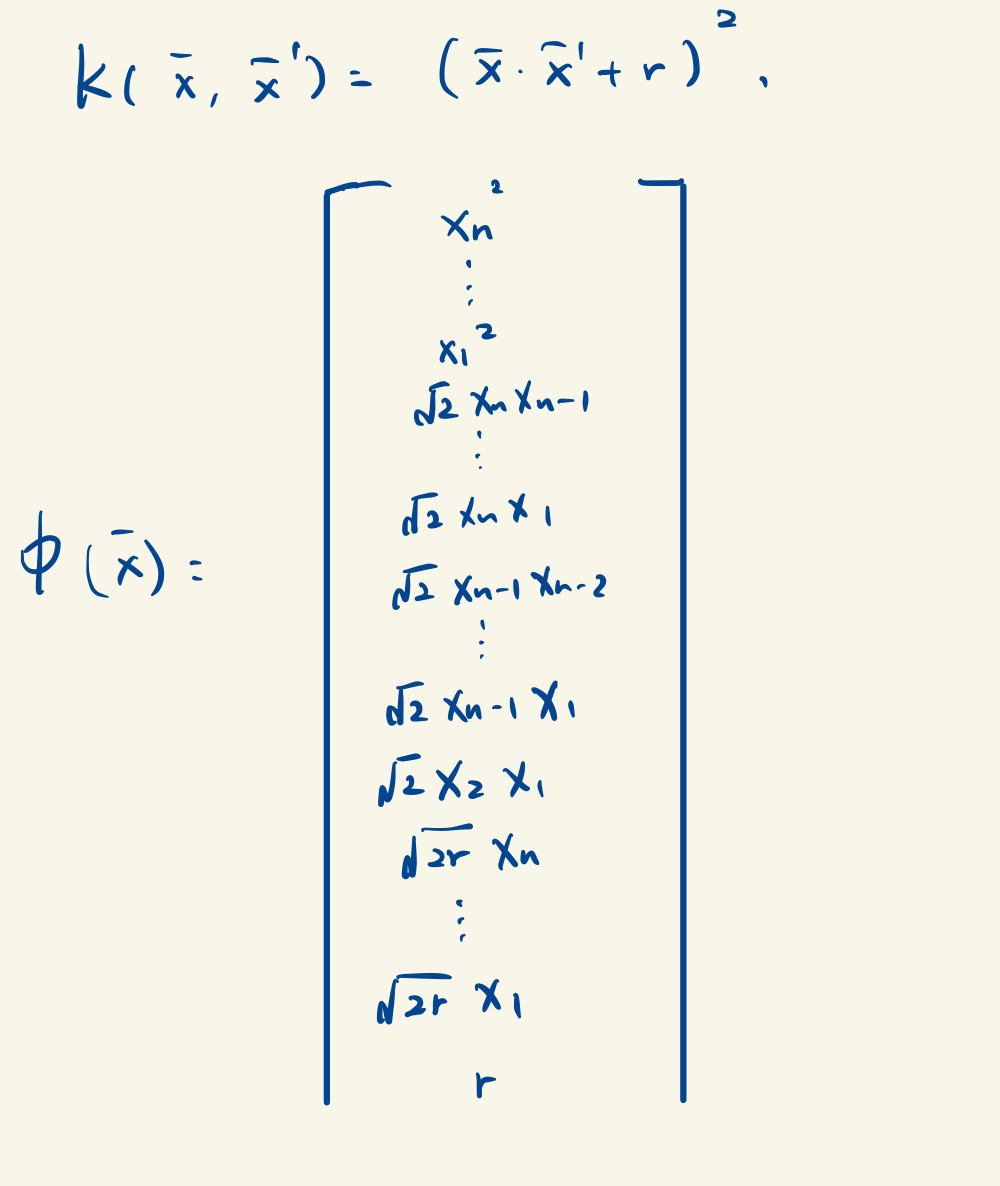 K( x̄, x̄') = (x̄ · x̄' + r)²,
xₙ²
⋮
x₁²
√2 xₙ xₙ₋₁
⋮
√2 xₙ x₁
√2 xₙ₋₁ xₙ₋₂
ϕ(x̄) =
⋮
√2 xₙ₋₁ x₁
√2 x₂ x₁
√2r xₙ
⋮
√2r x₁
r